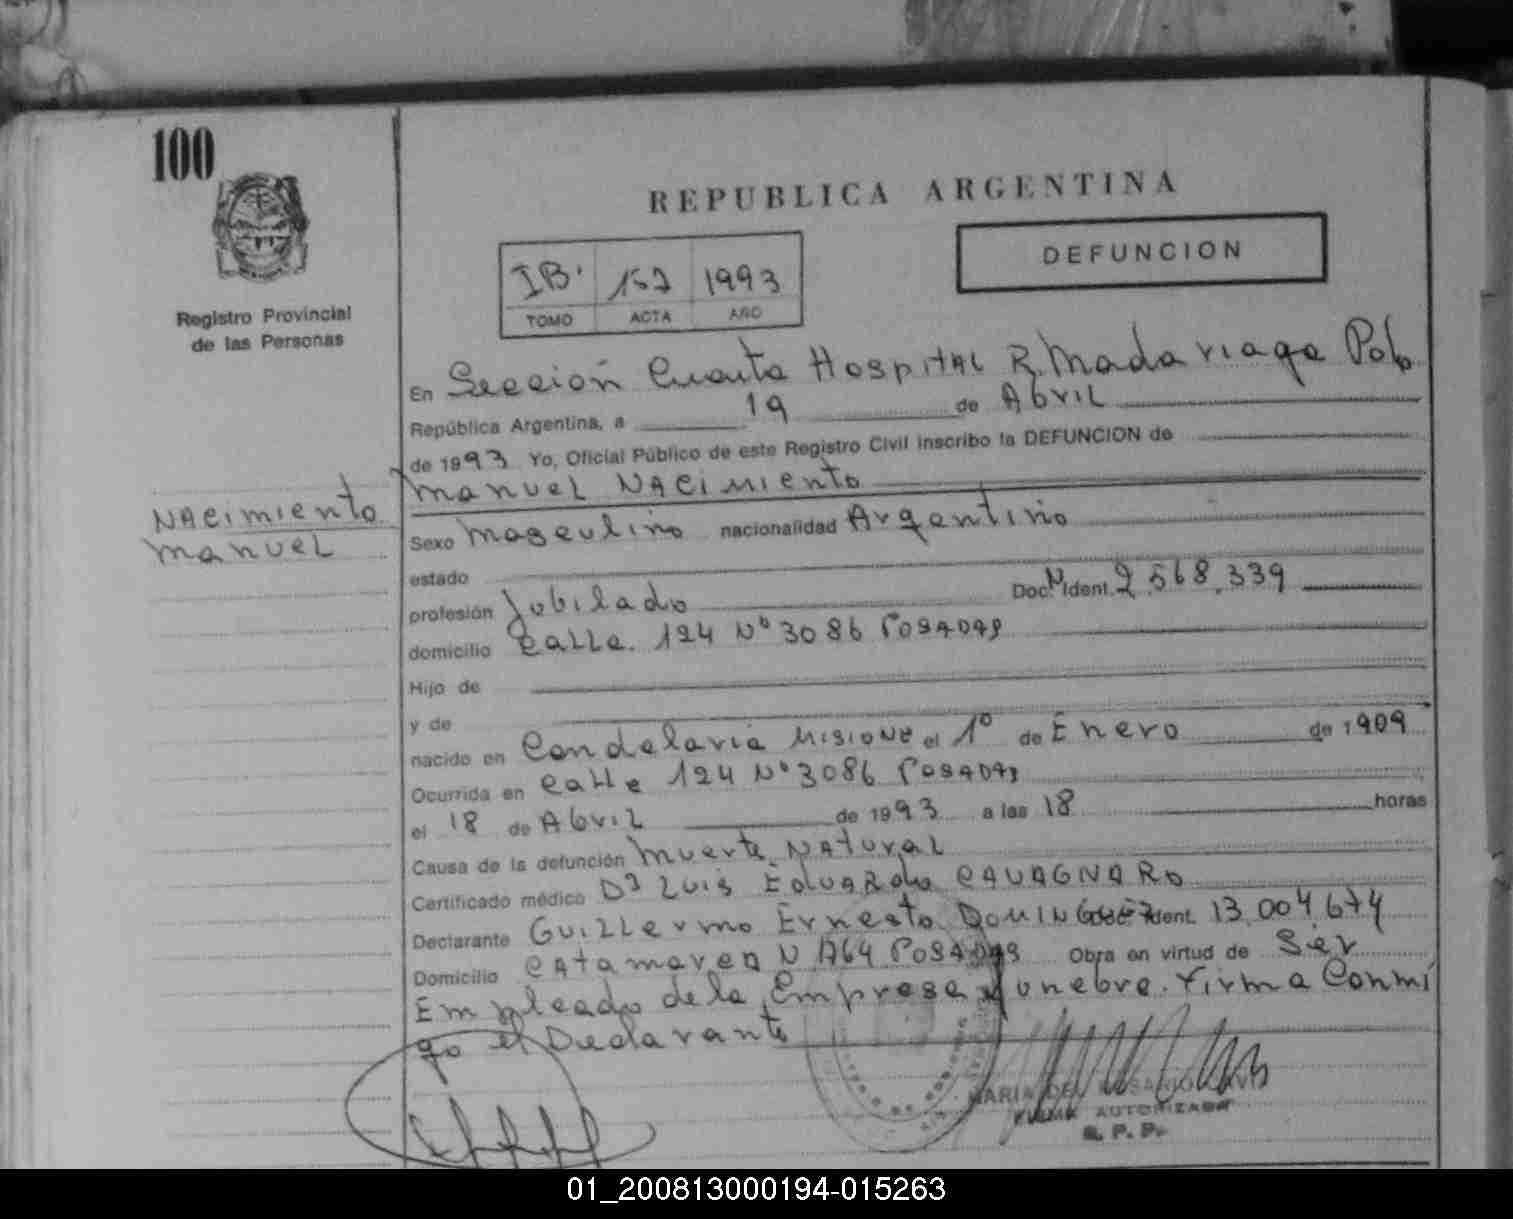 100
REPUBLICA ARGENTINA
DEFUNCION
IB' 157 1993
TOMO ACTA AÑO
Registro Provincial
de las Personas
En Sección Cuarta Hospital R. Madariaga
República Argentina, a 19 de Abril
de 1993 Yo, Oficial Público de este Registro Civil inscribo la DEFUNCION de
Manuel Nacimiento
Nacimiento
Manuel
Sexo Masculino nacionalidad Argentino
estado
profesión Jubilado Doc. N Ident. 2.568.339
domicilio Calle 124 Nº 3086 Posadas
Hijo de
y de
nacido en Candelaria Misione el 1º de Enero de 1909
Ocurrida en Calle 124 Nº 3086 Posadas
el 18 de Abril de 1993 a las 18 horas
Causa de la defunción Muerte Natural
Certificado médico Dr Luis Eduardo Cavagnaro
Declarante Guillermo Ernesto Dominguez Ident. 13.004.674
Domicilio Catamarca N Posadas Obra en virtud de Ser
Empleado de la Empresa Funebre. Firma Conmi
go el Declarante
MARIA DEL ROSARIO
FIRMA AUTORIZADA
R. P. P.
01_200813000194-015263